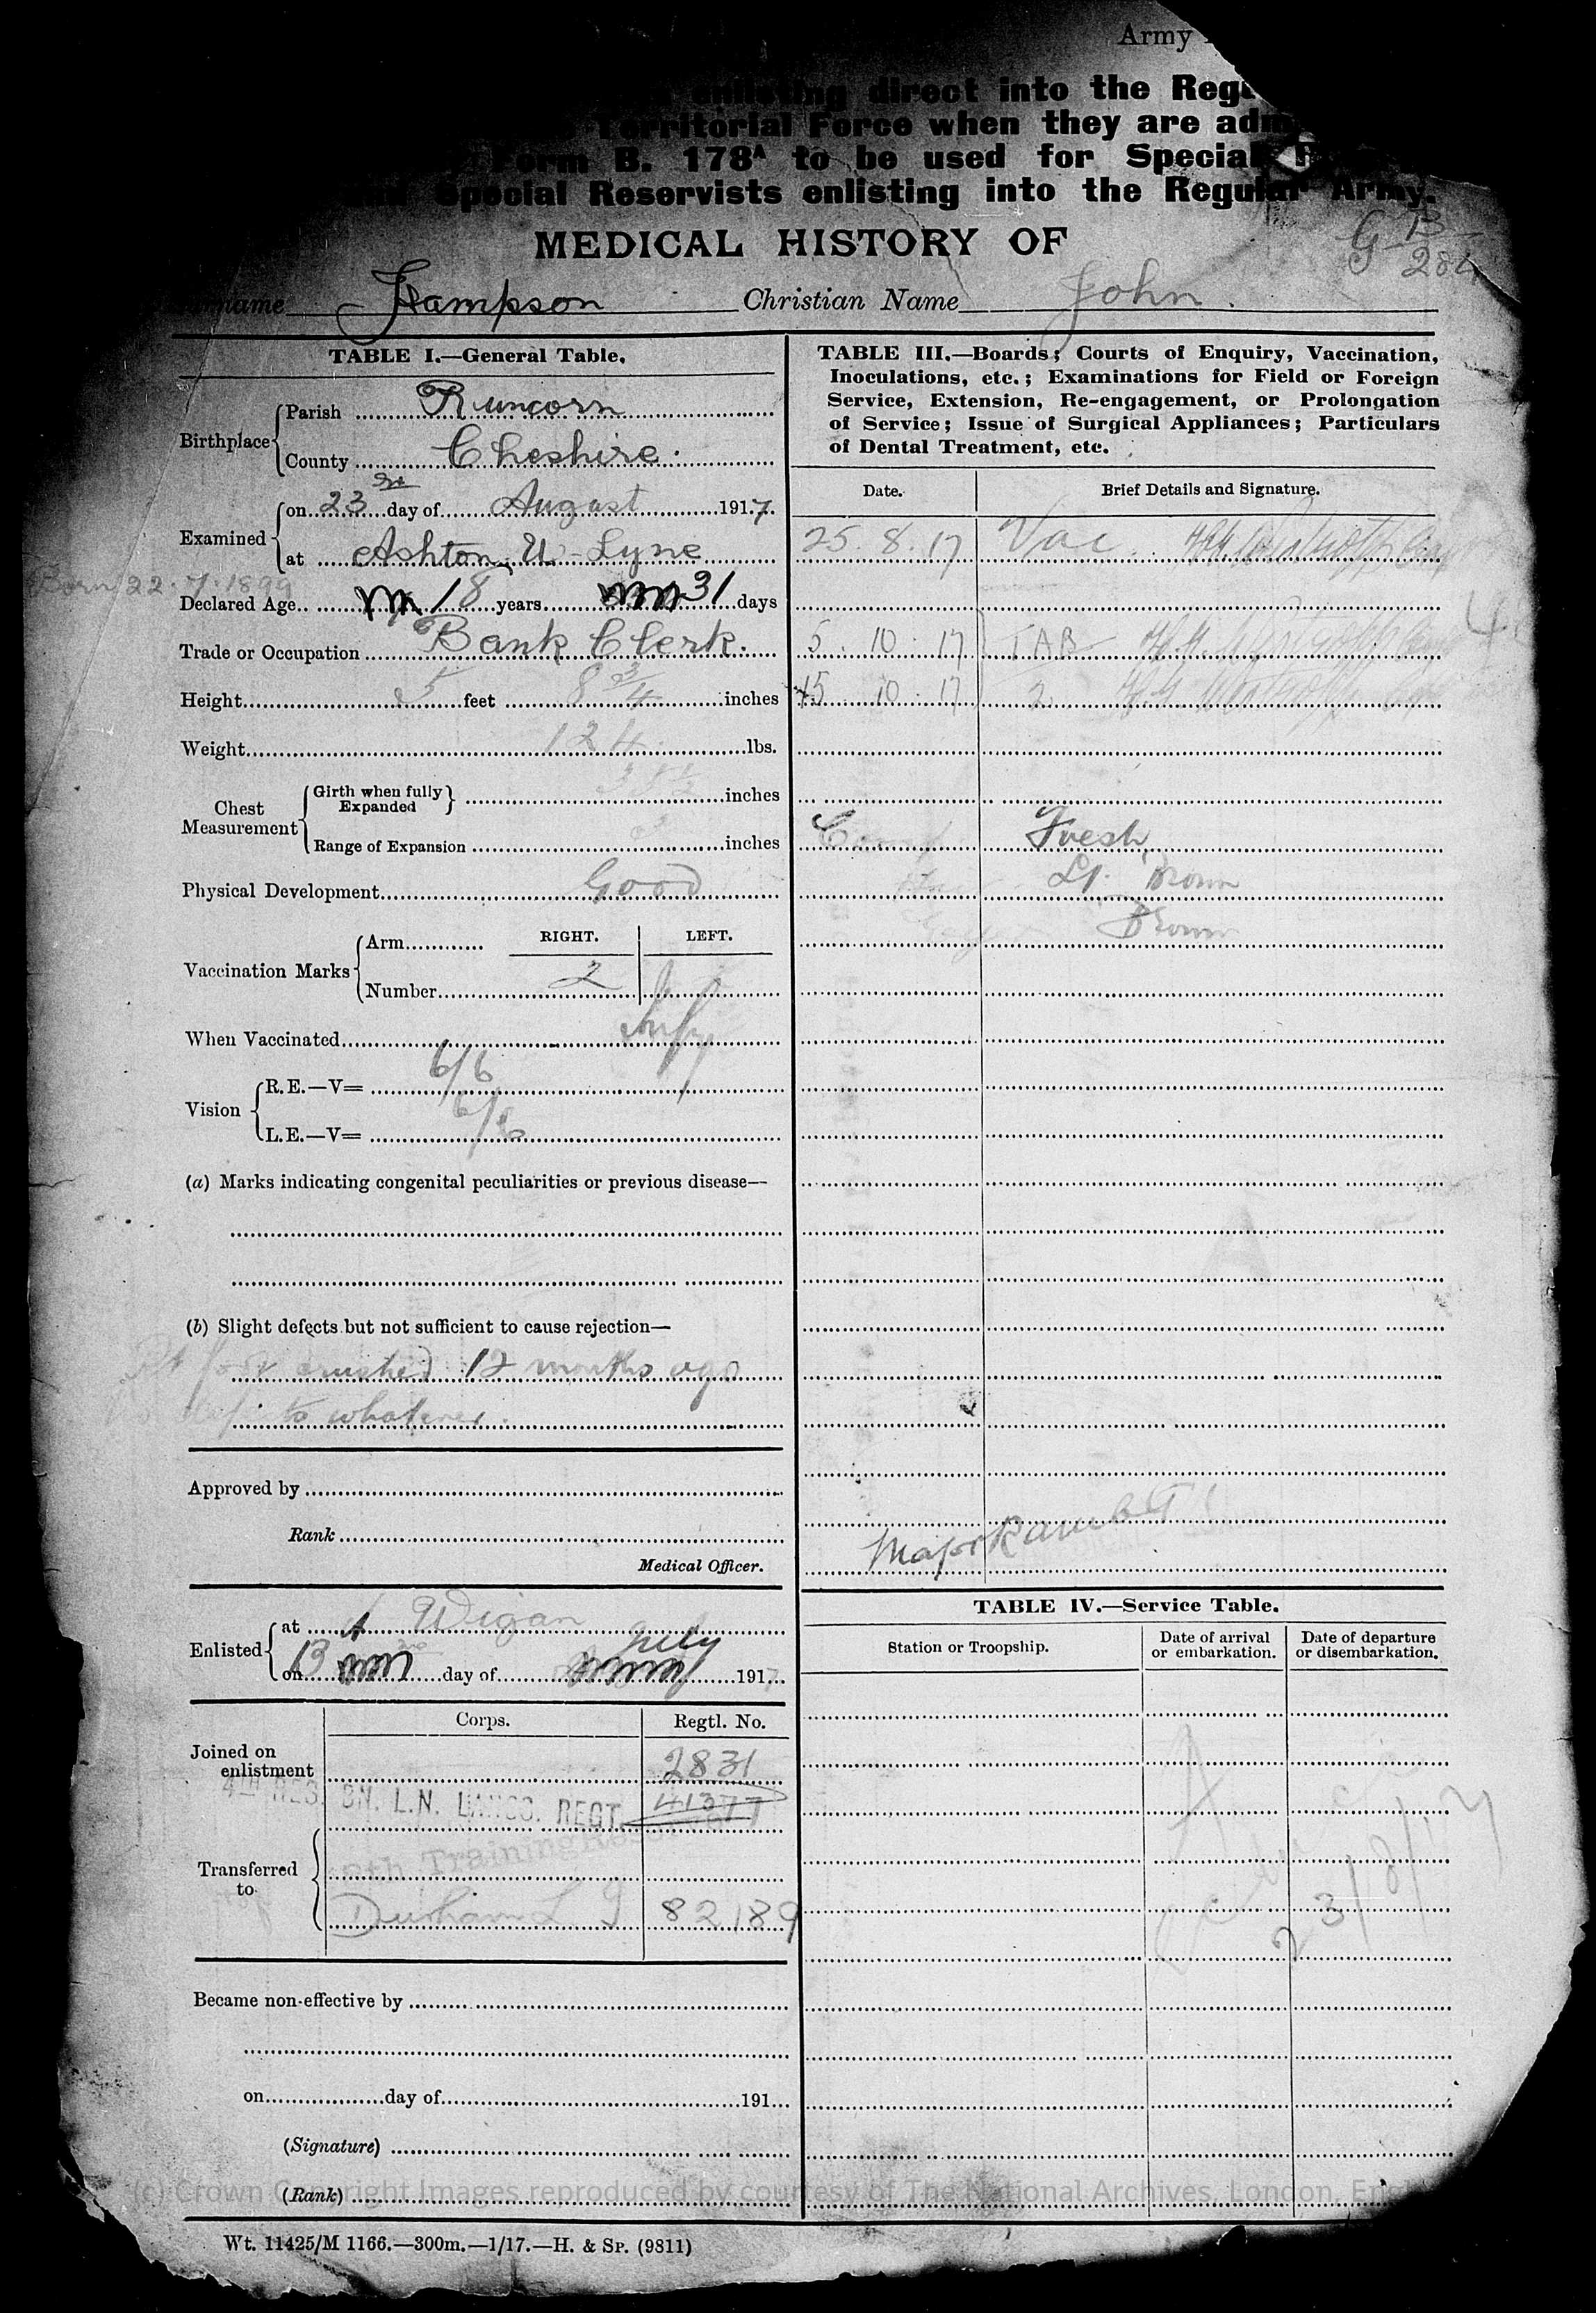 Army
enlisting direct into the Reg
Territorial Force when they are adm
Form B. 178A to be used for Special
and Special Reservists enlisting into the Regular Army.
MEDICAL HISTORY OF
G B
Surname Hampson Christian Name John.
TABLE I.—General Table.
Birthplace
Parish Runcorn
County Cheshire.
Examined
on 23rd day of August 1917.
at Ashton-U-Lyne
Born 22.7.1899
Declared Age.. 18 years 31 days
Trade or Occupation Bank Clerk.
Height 5 feet 8 3/4 inches
Weight 124 lbs.
Chest Measurement
Girth when fully Expanded 35 1/2 inches
Range of Expansion 3 inches
Physical Development Good
Vaccination Marks
Arm RIGHT. LEFT.
Number 2
When Vaccinated Infy
Vision
R.E.—V= 6/6
L.E.—V= 6/6
(a) Marks indicating congenital peculiarities or previous disease—
(b) Slight defects but not sufficient to cause rejection—
crushed 12 months ago
No defects whatever.
Approved by
Rank
Medical Officer.
Enlisted
at Wigan
on 13 day of July 1917
Corps. Regtl. No.
Joined on enlistment 2831
4TH RES. BN. L.N. LANCS. REGT. 41377
Transferred to
Training Res
Durham L I 82189
Became non-effective by
on day of 191
(Signature)
(Rank)
TABLE III.—Boards; Courts of Enquiry, Vaccination,
Inoculations, etc.; Examinations for Field or Foreign
Service, Extension, Re-engagement, or Prolongation
of Service; Issue of Surgical Appliances; Particulars
of Dental Treatment, etc.
Date. Brief Details and Signature.
25.8.17 Vac.
5.10.17 TAB
4
15 10.17 2
Comp Fresh
Lt. Brown
Brown
Major RAMC T
TABLE IV.—Service Table.
Station or Troopship. Date of arrival or embarkation. Date of departure or disembarkation.
A
23/8/17
(c) Crown Copyright Images reproduced by courtesy of The National Archives, London, Engl
Wt. 11425/M 1166.—300m.—1/17.—H. & SP. (9811)